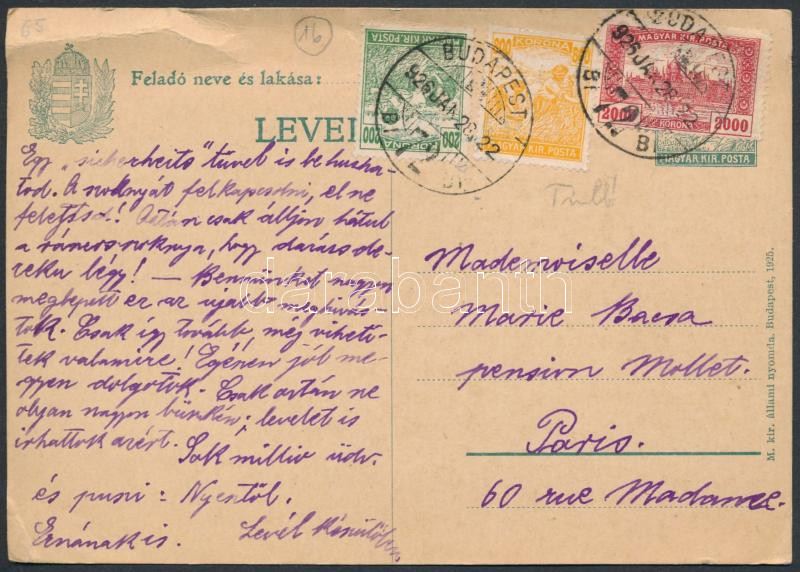 65
16
Feladó neve és lakása:
LEVEL
MAGYAR KIR. POSTA
200 KORONA 200
KORONA
MAGYAR KIR. POSTA
MAGYAR KIR. POSTA
2000 KORONA 2000
MAGYAR KIR. POSTA
BUDAPEST
926 JAN 26 22
BUDAPEST
926 JAN 26 22
Egy "sicherheits" tűvel is behuzha-
tod. A szoknyát felkapcsolni, el ne
felejtsd! Aztán csak álljon hátul
a ráncos szoknya, hogy darázsde-
reku légy! — Bennünket nagyon
meglepett ez az ujabb
tok. Csak így tovább még viheti-
tek valamire! Egészen jól me-
gyen dolgotok. Csak aztán ne
olyan nagyon büszkén; levelet is
irhattok azért. Sok millió üdv.
és puszi:
Ernának is. Levél készülőben
Mademoiselle
Marie Bacsa
pension Mollet.
Paris.
60 rue Madame.
M. kir. állami nyomda. Budapest, 1925.
darabanth